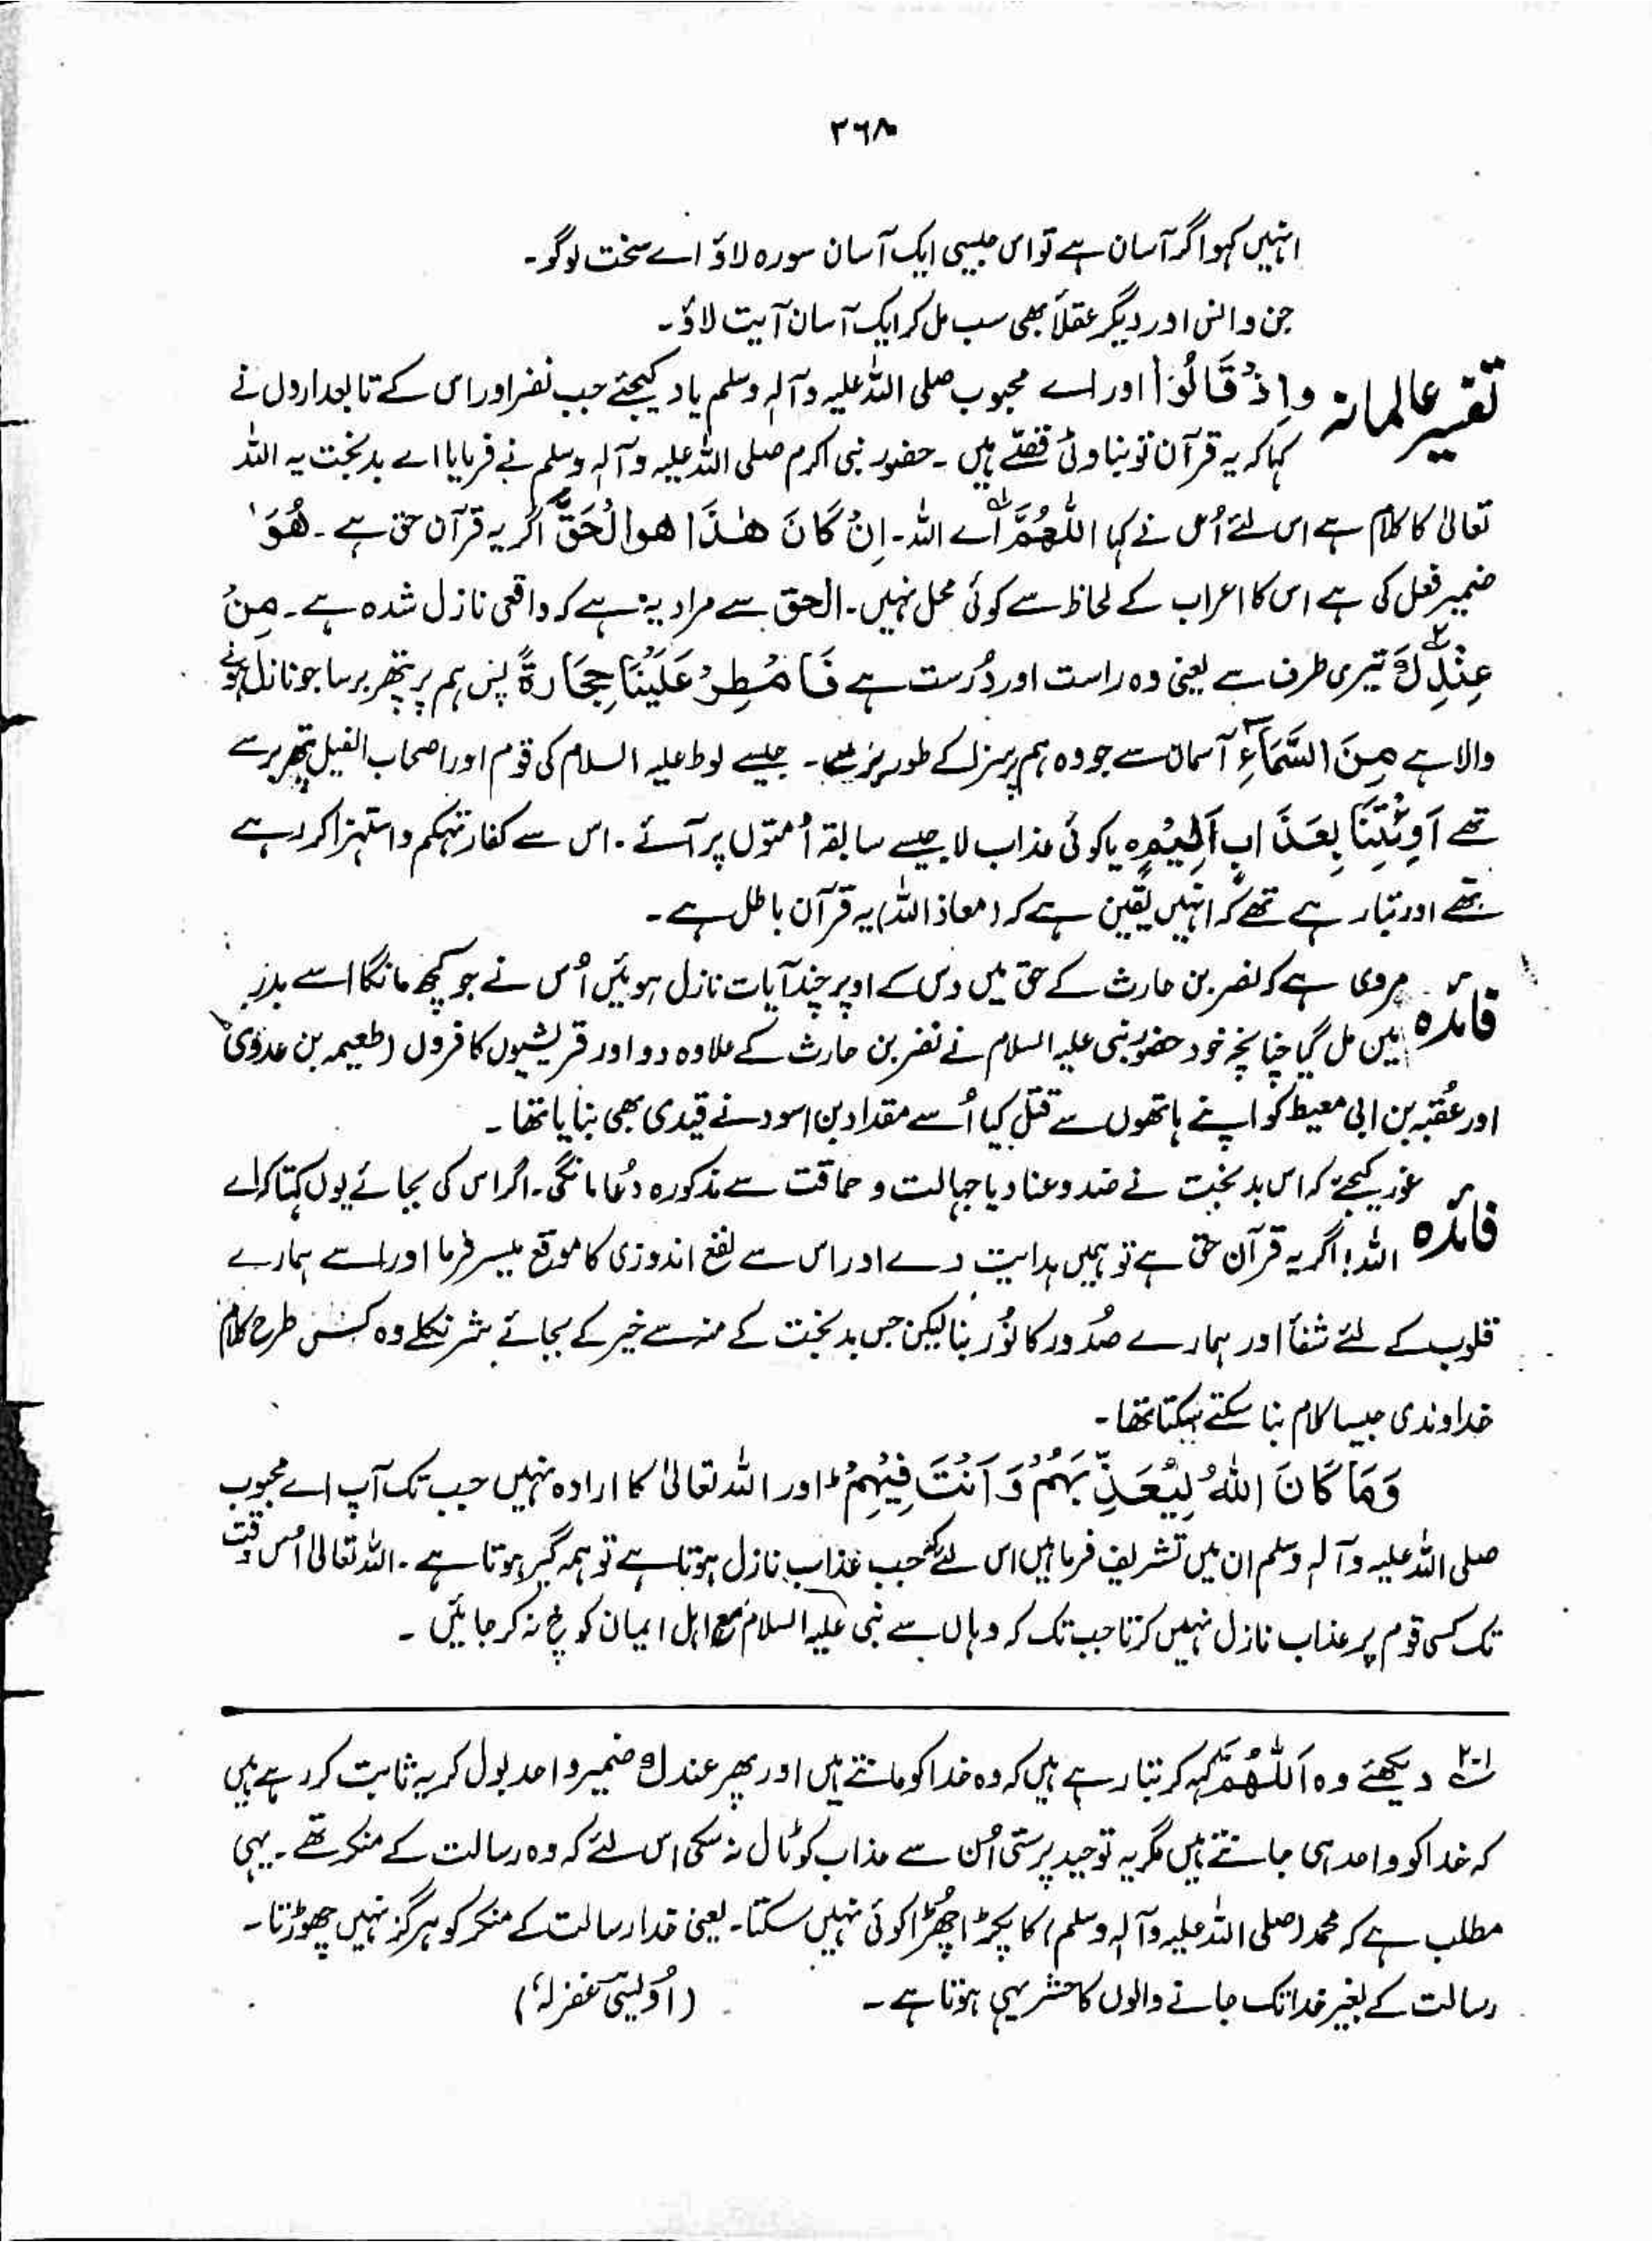 ۳۶۸
انہیں کہو اگر آسان ہے تو اس جیسی ایک آسان سورہ لاؤ اے سخت لوگو۔
جن و انس اور دیگر عقلاً بھی سب مل کر ایک آسان آیت لاؤ۔
تفسیر عالمانہ وَاِذْ قَالُوْا اور اے محبوب صلی اللہ علیہ وآلہٖ وسلم یاد کیجئے جب نضر اور اس کے تابعداروں نے
کہا کہ یہ قرآن تو بناوٹی قصّے ہیں ۔ حضور نبی اکرم صلی اللہ علیہ وآلہٖ وسلم نے فرمایا اے بدبخت یہ اللہ
تعالیٰ کا کلام ہے اس لئے اُس نے کہا اللّٰھُمَّ اے اللہ۔ اِنْ کَانَ ھٰذَا ھوالْحَقَّ اگر یہ قرآن حق ہے ۔ ھُوَ
ضمیر فعل کی ہے اس کا اعراب کے لحاظ سے کوئی محل نہیں۔ الحق سے مراد یہ ہے کہ واقعی نازل شدہ ہے۔ مِنْ
عِنْدِکَ تیری طرف سے یعنی وہ راست اور دُرست ہے فَاَمْطِرْ عَلَیْنَا حِجَارَۃً پس ہم پر پتھر برسا جو نازل ہونے
والا ہے مِنَ السَّمَآءِ آسمان سے جو وہ ہم پر سزا کے طور پر ۔ جیسے لوط علیہ السلام کی قوم اور اصحاب الفیل پتھر برسے
تھے اَوِئْتِنَا بِعَذَابٍ اَلِیْمٍ ہ یا کوئی عذاب لا جیسے سابقہ اُمتوں پر آئے ۔ اس سے کفار تہکم و استہزا کر رہے
تھے اور بتا رہے تھے کہ انہیں یقین ہے کہ (معاذ اللہ) یہ قرآن باطل ہے۔
فائدہ مروی ہے کہ نضر بن حارث کے حق میں دس کے اوپر چند آیات نازل ہوئیں اُس نے جو کچھ مانگا اسے بدر
میں مل گیا چنانچہ خود حضور نبی علیہ السلام نے نضر بن حارث کے علاوہ دو اور قریشیوں کافروں (طعیمہ بن عدوی)
اور عُقبہ بن ابی معیط کو اپنے ہاتھوں سے قتل کیا اُسے مقداد بن اسود نے قیدی بھی بنایا تھا ۔
فائدہ غور کیجئے کہ اس بدبخت نے ضد و عناد یا جہالت و حماقت سے مذکورہ دُعا مانگی۔ اگر اس کی بجائے یوں کہتا کہ اے
اللہ! اگر یہ قرآن حق ہے تو ہمیں ہدایت دے اور اس سے نفع اندوزی کا موقع میسر فرما اور اسے ہمارے
قلوب کے لئے شفأ اور ہمارے صُدور کا نُور بنا لیکن جس بدبخت کے منہ سے خیر کے بجائے شر نکلے وہ کس طرح کلام
خداوندی جیسا کلام بنا سکتے تھا۔
وَمَا کَانَ اللّٰہُ لِیُعَذِّبَہُمْ وَ اَنْتَ فِیْہِمْ ط اور اللہ تعالیٰ کا ارادہ نہیں جب تک آپ اے محبوب
صلی اللہ علیہ وآلہٖ وسلم ان میں تشریف فرما ہیں اس لئے کہ جب عذاب نازل ہوتا ہے تو ہمہ گیر ہوتا ہے ۔ اللہ تعالیٰ اُس وقت
تک کسی قوم پر عذاب نازل نہیں کرتا جب تک کہ وہاں سے نبی علیہ السلام مع اہل ایمان کوچ نہ کر جائیں ۔
۱-۲ دیکھئے وہ اَللّٰھُمَّ کہہ کر بتا رہے ہیں کہ وہ خدا کو مانتے ہیں اور پھر عندك ضمیر واحد بول کر یہ ثابت کر رہے ہیں
کہ خدا کو واحد ہی جانتے ہیں مگر یہ توحید پرستی اُن سے عذاب کو ٹال نہ سکی اس لئے کہ وہ رسالت کے منکر تھے ۔ یہی
مطلب ہے کہ محمد (صلی اللہ علیہ وآلہٖ وسلم) کا پکڑا چھُڑا کوئی نہیں سکتا۔ یعنی خدا رسالت کے منکر کو ہرگز نہیں چھوڑتا۔
رسالت کے بغیر خدا تک جانے والوں کا حشر یہی ہوتا ہے ۔ (اُویسی غفرلہٗ)